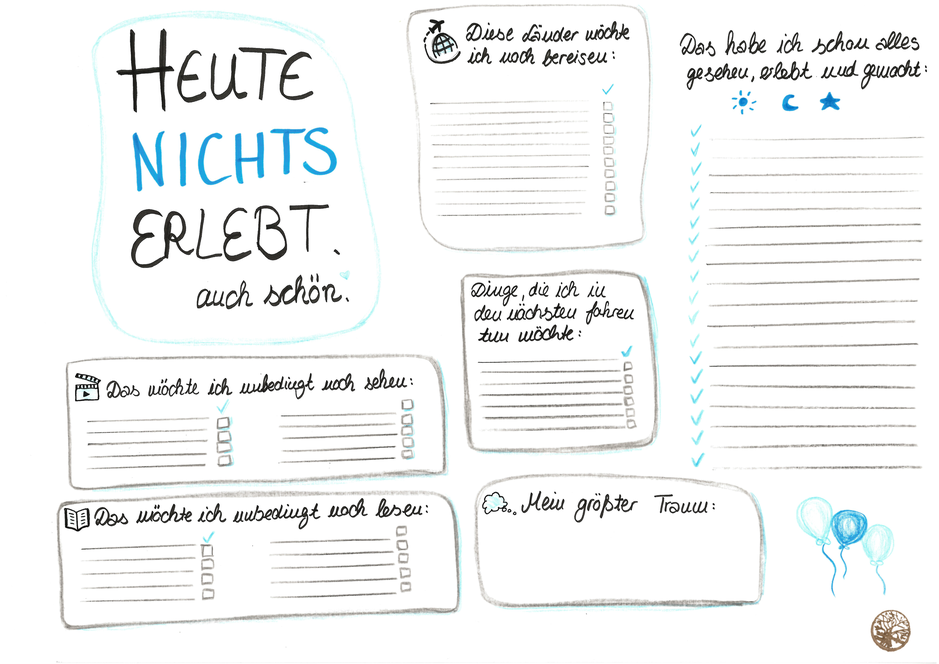 HEUTE
NICHTS
ERLEBT.
auch schön.
Diese Länder möchte
ich noch bereisen:
Das habe ich schon alles
gesehen, erlebt und gemacht:
Dinge, die ich in
den nächsten Jahren
tun möchte:
Das möchte ich unbedingt noch sehen:
Das möchte ich unbedingt noch lesen:
Mein größter Traum: